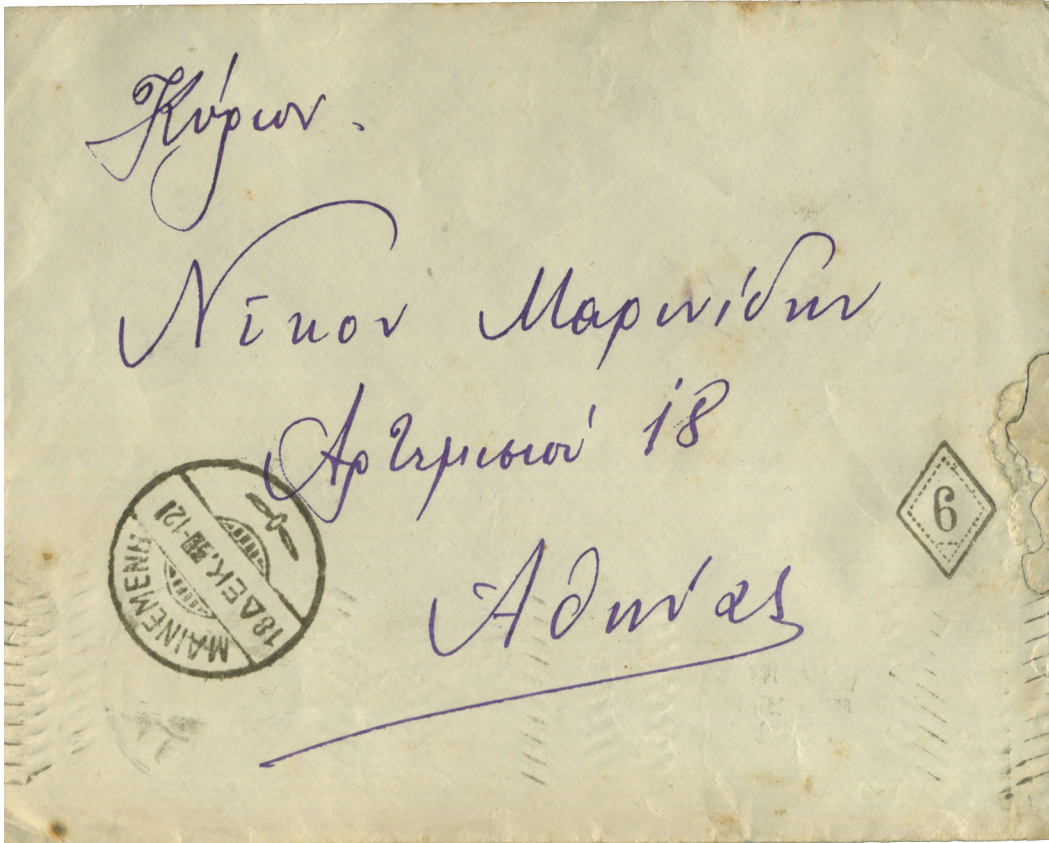 Κύριον.
Νῖκον Μαρινίδην
Ἀρτεμισίου 18
Ἀθήνας
ΜΑΙΝΕΜΕΝΗ
18 ΔΕΚ. -12
6